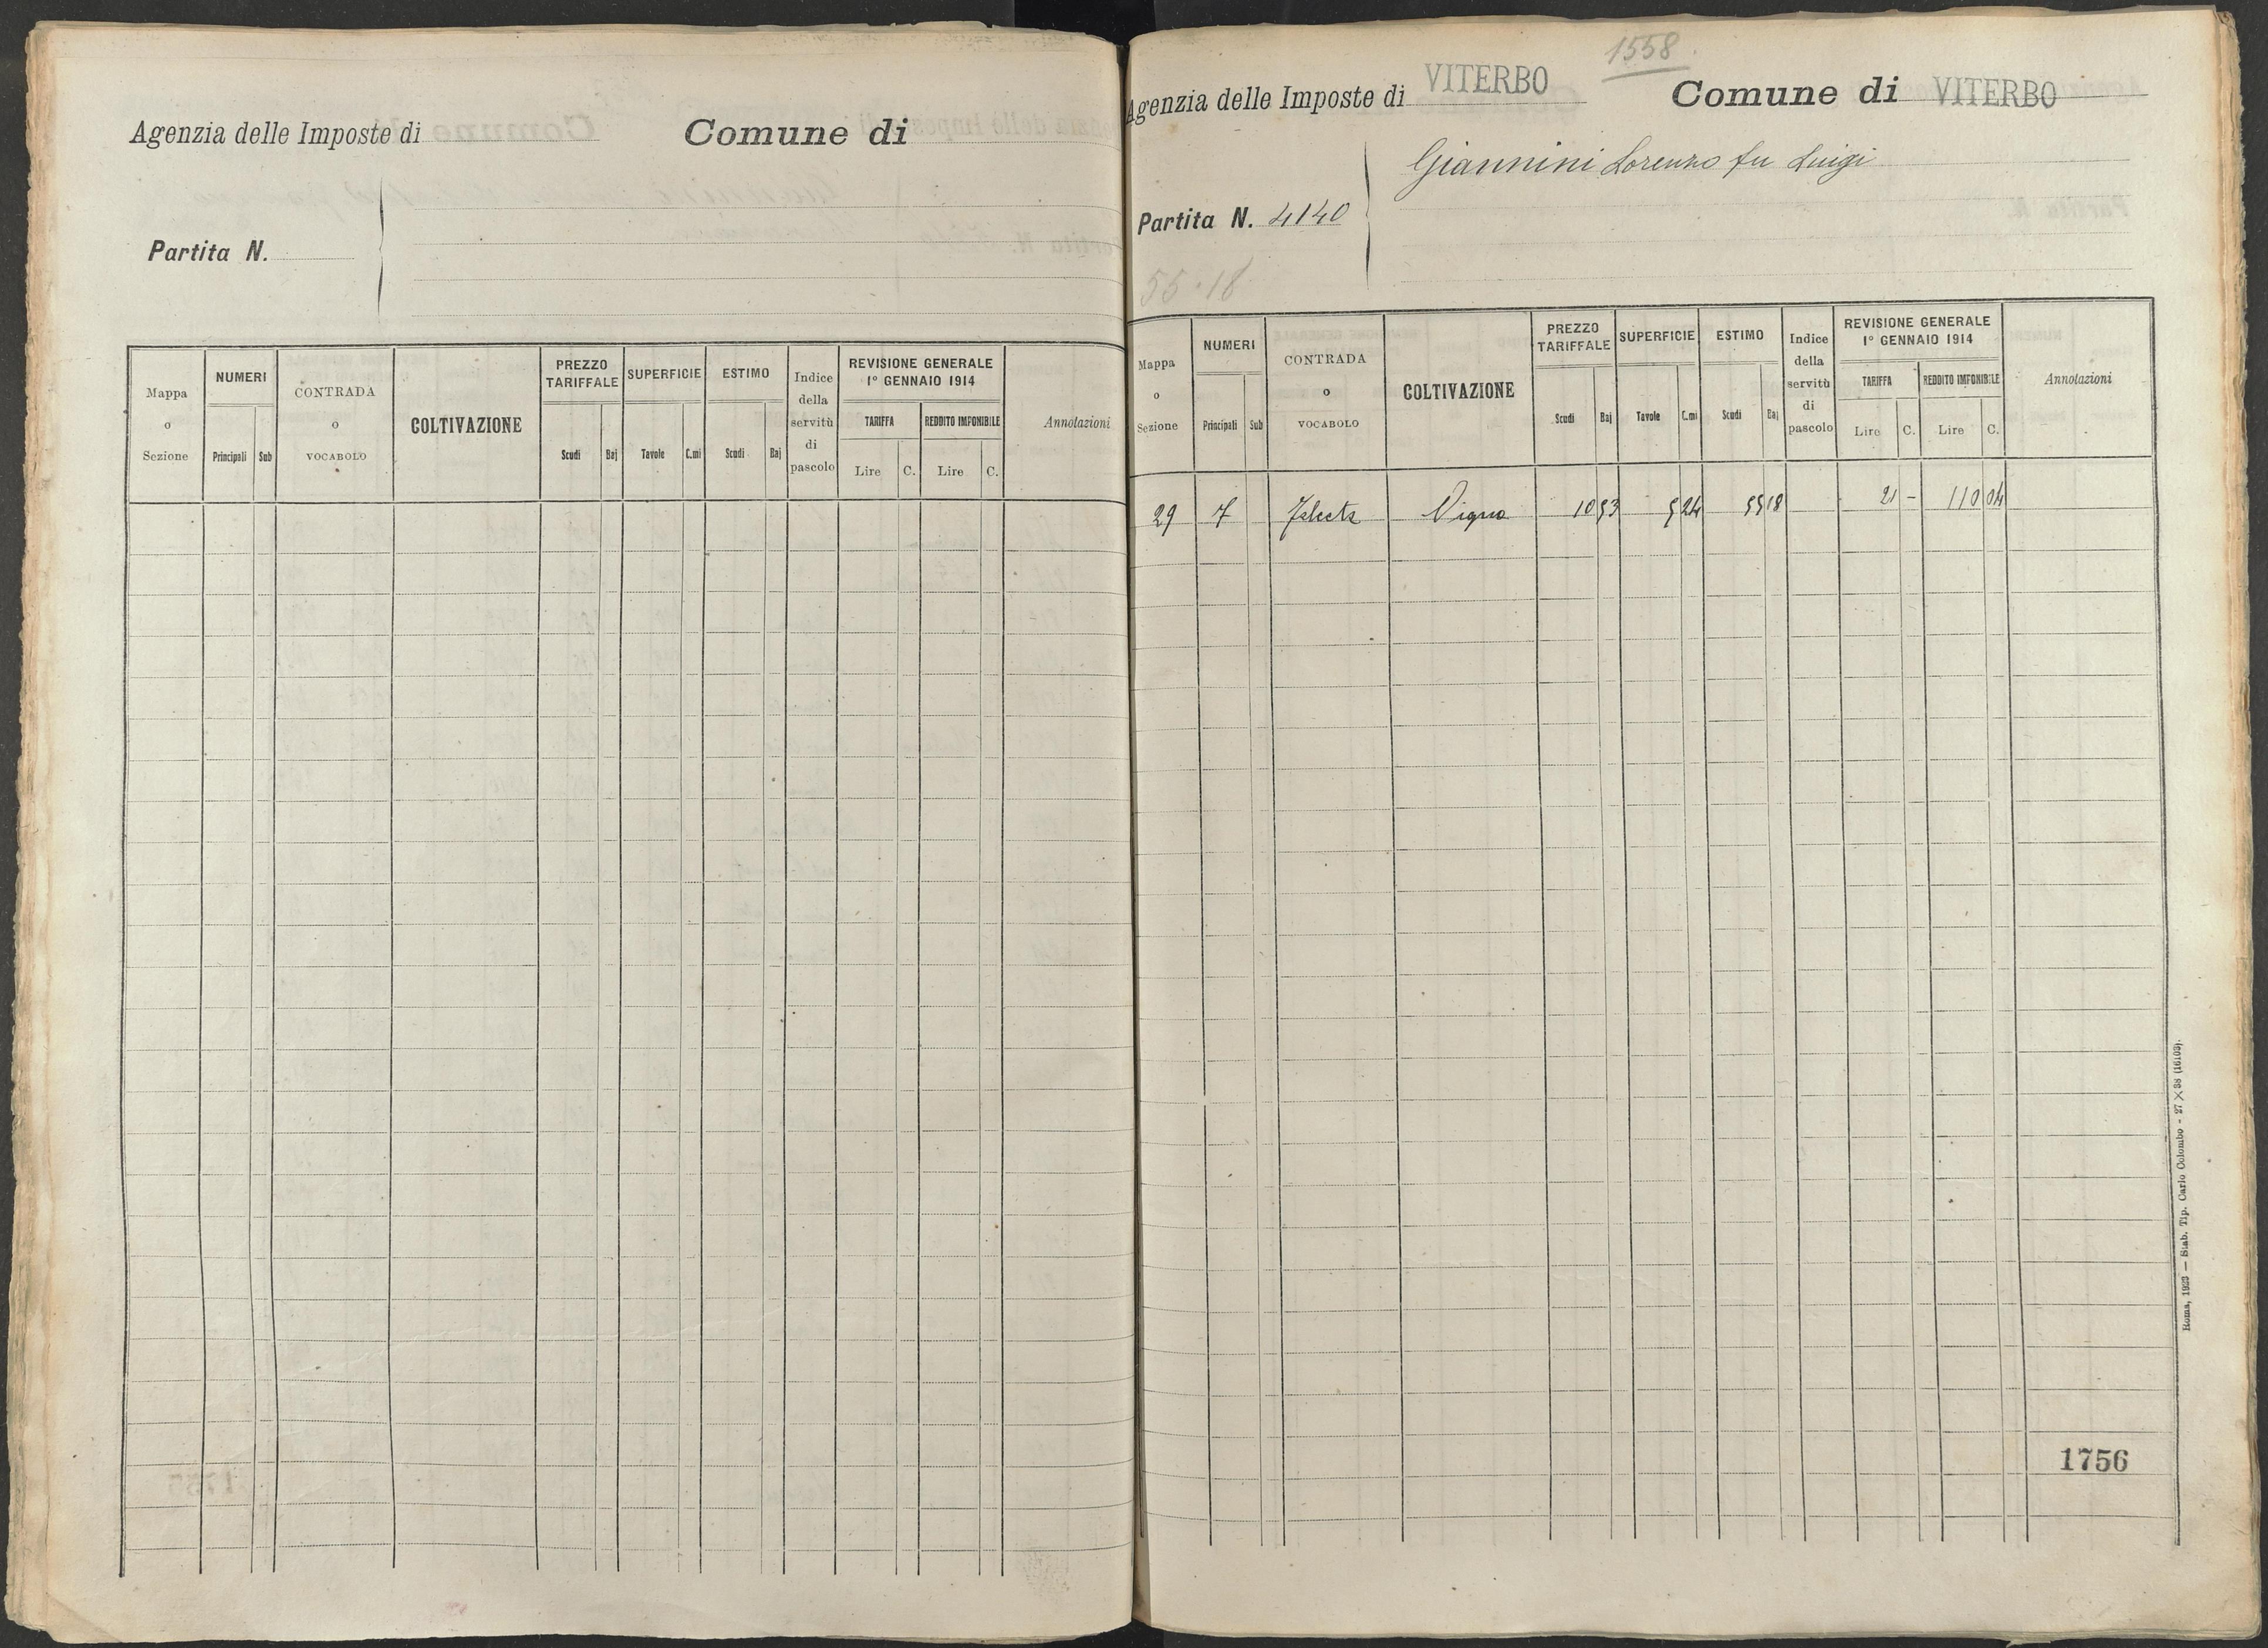 Agenzia delle Imposte di
Comune di
Partita N.
Mappa o Sezione
NUMERI
Principali Sub
CONTRADA o VOCABOLO
COLTIVAZIONE
PREZZO TARIFFALE
Scudi Baj
SUPERFICIE
Tavole C.mi
ESTIMO
Scudi Baj
Indice della servitù di pascolo
REVISIONE GENERALE
1º GENNAIO 1914
TARIFFA
Lire C.
REDDITO IMPONIBILE
Lire C.
Annotazioni
1558
Agenzia delle Imposte di VITERBO
Comune di VITERBO
Giannini Lorenzo fu Luigi
Partita N. 4140
55.18
Mappa o Sezione
NUMERI
Principali Sub
CONTRADA o VOCABOLO
COLTIVAZIONE
PREZZO TARIFFALE
Scudi Baj
SUPERFICIE
Tavole C.mi
ESTIMO
Scudi Baj
Indice della servitù di pascolo
REVISIONE GENERALE
1º GENNAIO 1914
TARIFFA
Lire C.
REDDITO IMPONIBILE
Lire C.
Annotazioni
29 7 Vigna 10 53 5 24 55 18 21 – 110 04
1756
Roma, 1923 — Stab. Tip. Carlo Colombo - 27 × 38 (16103).